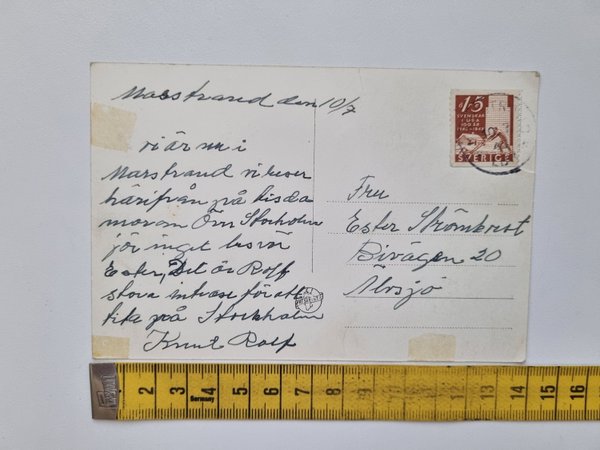 Marstrand den 10/7
vi är nu i
Marstrand vi reser
härifrån på tisda
moron Om Stocholm
jör inget besvär
Ester, Det är Rolf
stora intrese för att
titta på Stockholm
Knut Rolf
Fru
Ester Strömkvist
Bivägen 20
Älvsjö
15
SVENSKAR
I USA
100 ÅR
SVERIGE
2 3 4 5 6 7 8 9 10 11 12 13 14 15 16
Germany